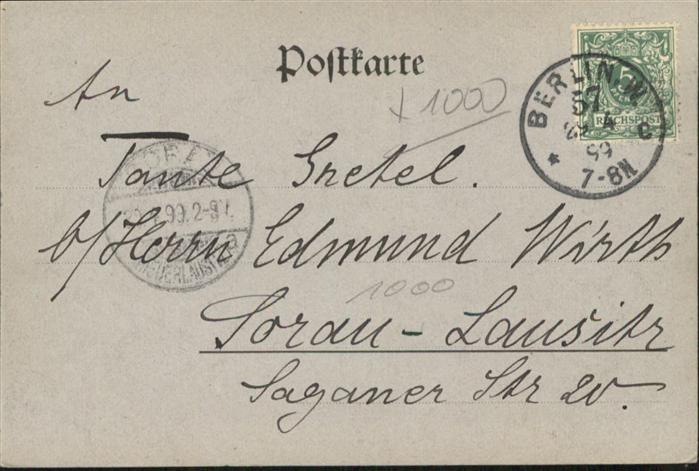 Postkarte
An
Tante Gretel.
b/Herrn Edmund Wirth
Sorau-Lausitz
Saganer Str 20.
+ 1000
1000
5
REICHSPOST
BERLIN.W.
57
99
7-8N
99.2-3